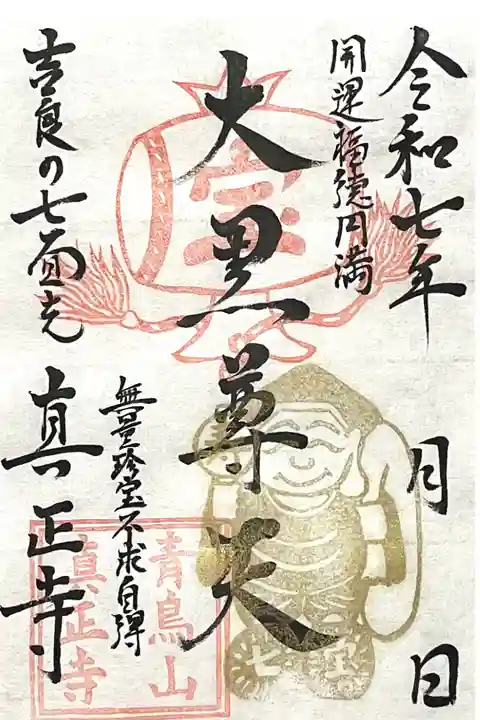 令和七年 月 日
開運福徳円満
大黒尊天
無量珍宝不求自得
吉良の七面さん
真正寺
宝
寿
七福
青鳥山
真正寺